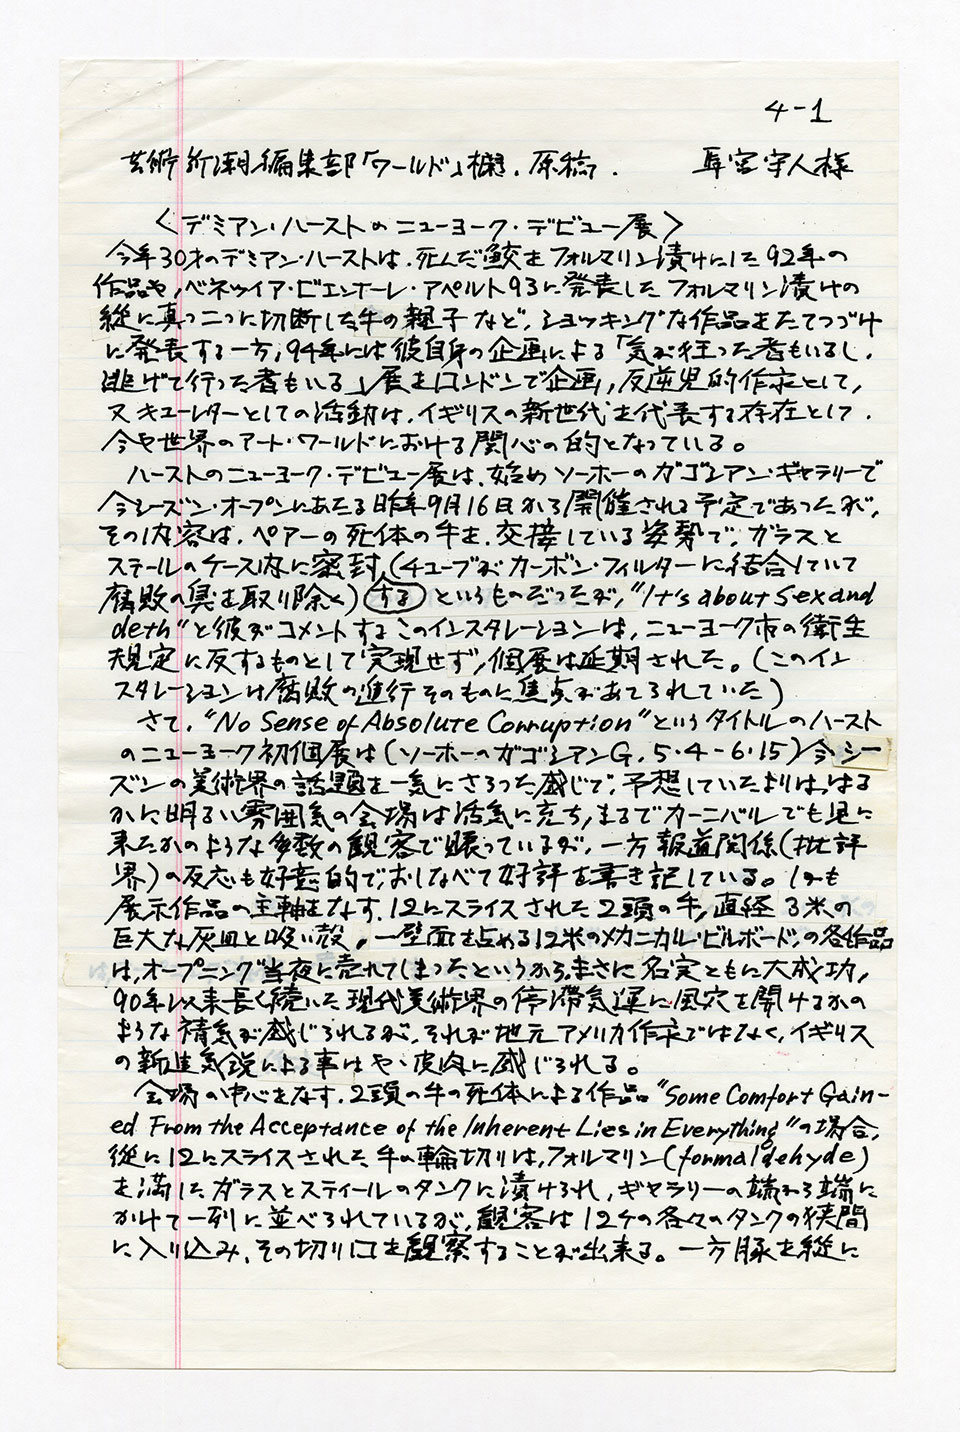 4-1
芸術新潮編集部「ワールド」欄. 原稿. 宮守人様
〈デミアン・ハーストのニューヨーク・デビュー展〉
今年30才のデミアン・ハーストは、死んだ鮫をフォルマリン漬けにした92年の
作品や、ベネツィア・ビエンナーレ・アペルト93に発表したフォルマリン漬けの
縦に真っ二つに切断した牛の親子など、ショッキングな作品をたてつづけ
に発表する一方、94年には彼自身の企画による「気が狂った者もいるし、
逃げて行った者もいる」展をロンドンで企画、反逆児的作家として、
又キューレターとしての活動は、イギリスの新世代を代表する存在として、
今や世界のアート・ワールドにおける関心の的となっている。
ハーストのニューヨーク・デビュー展は、始めソーホーのガゴシアン・ギャラリーで
今シーズン・オープンにあたる昨年9月16日から開催される予定であったが、
その内容は、ペアーの死体の牛を、交接している姿勢で、ガラスと
スチールのケース内に密封(チューブがカーボン・フィルターに結合していて
腐敗の臭を取り除く)するというものだったが、"It's about Sex and
deth"と彼がコメントするこのインスタレーションは、ニューヨーク市の衛生
規定に反するものとして実現せず、個展は延期された。(このイン
スタレーションは腐敗の進行そのものに焦点があてられていた)
さて、"No Sense of Absolute Corruption"というタイトルのハースト
のニューヨーク初個展は(ソーホーのガゴシアンG. 5・4-6・15)今シー
ズンの美術界の話題を一気にさらった感じで、予想していたよりは、はる
かに明るい雰囲気の会場は活気に充ち、まるでカーニバルでも見に
来たかのような多数の観客で賑っているが、一方報道関係(批評
界)の反応も好意的で、おしなべて好評を書き記している。しかも
展示作品の主軸をなす、12にスライスされた2頭の牛、直経3米の
巨大な灰皿と吸い殻、一壁面を占める12米のメカニカル・ビルボード、の各作品
は、オープニング当夜に売れてしまったというから、まさに名実ともに大成功、
90年以来長く続いた現代美術界の停滞気運に風穴を開けるかの
ような精気が感じられるが、それが地元アメリカ作家ではなく、イギリス
の新進気鋭による事はやゝ皮肉に感じられる。
会場の中心をなす、2頭の牛の死体による作品"Some Comfort Gain-
ed From the Acceptance of the Inherent Lies in Everything"の場合、
縦に12にスライスされた牛の輪切りは、フォルマリン(formaldehyde)
を満したガラスとスティールのタンクに漬けられ、ギャラリーの端から端に
かけて一列に並べられているが、観客は12ケの各々のタンクの狭間
に入り込み、その切り口を観察することが出来る。一方豚を縦に